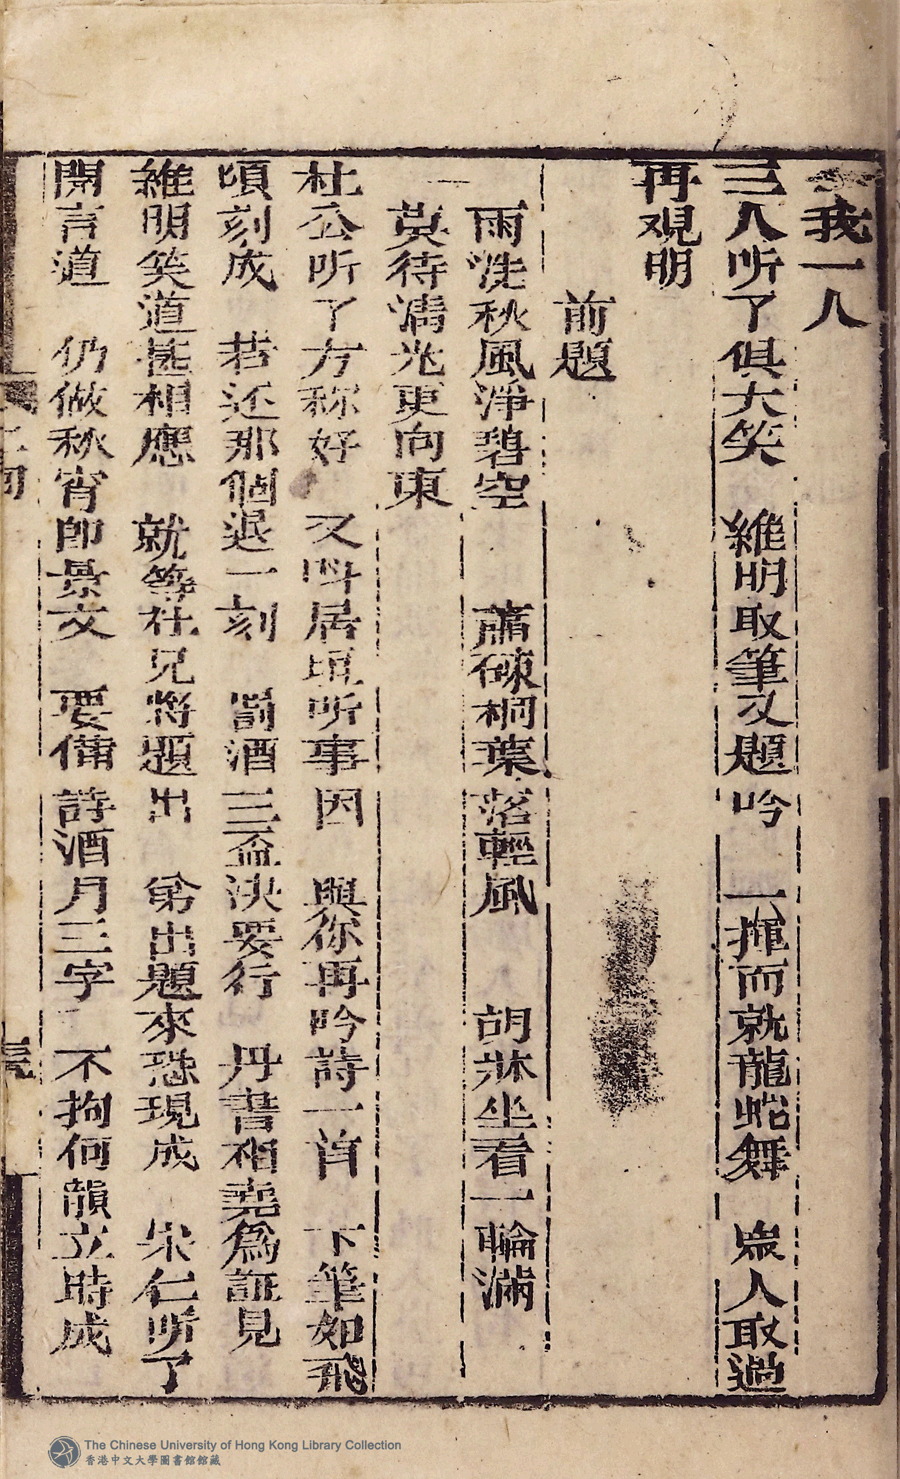 我一人
三人听了俱大笑　維明取筆又題吟　一揮而就龍蛇舞　衆人取過
再观明
前題
雨洗秋風淨碧空　蕭疎桐葉落輕風　胡牀坐看一輪滿
莫待清光更向東
杜公听了方称好　又呌居垣听事因　與你再吟詩一首　下筆如飛
頃刻成　若还那個退一刻　罰酒三盃决要行　丹書相堯爲証見
維明笑道甚相應　就等社兄將題出　兪出題來恐現成　宋仁听了
開言道　仍做秋宵即景文　要備詩酒月三字　不拘何韻立時成
The Chinese University of Hong Kong Library Collection
香港中文大學圖書館館藏